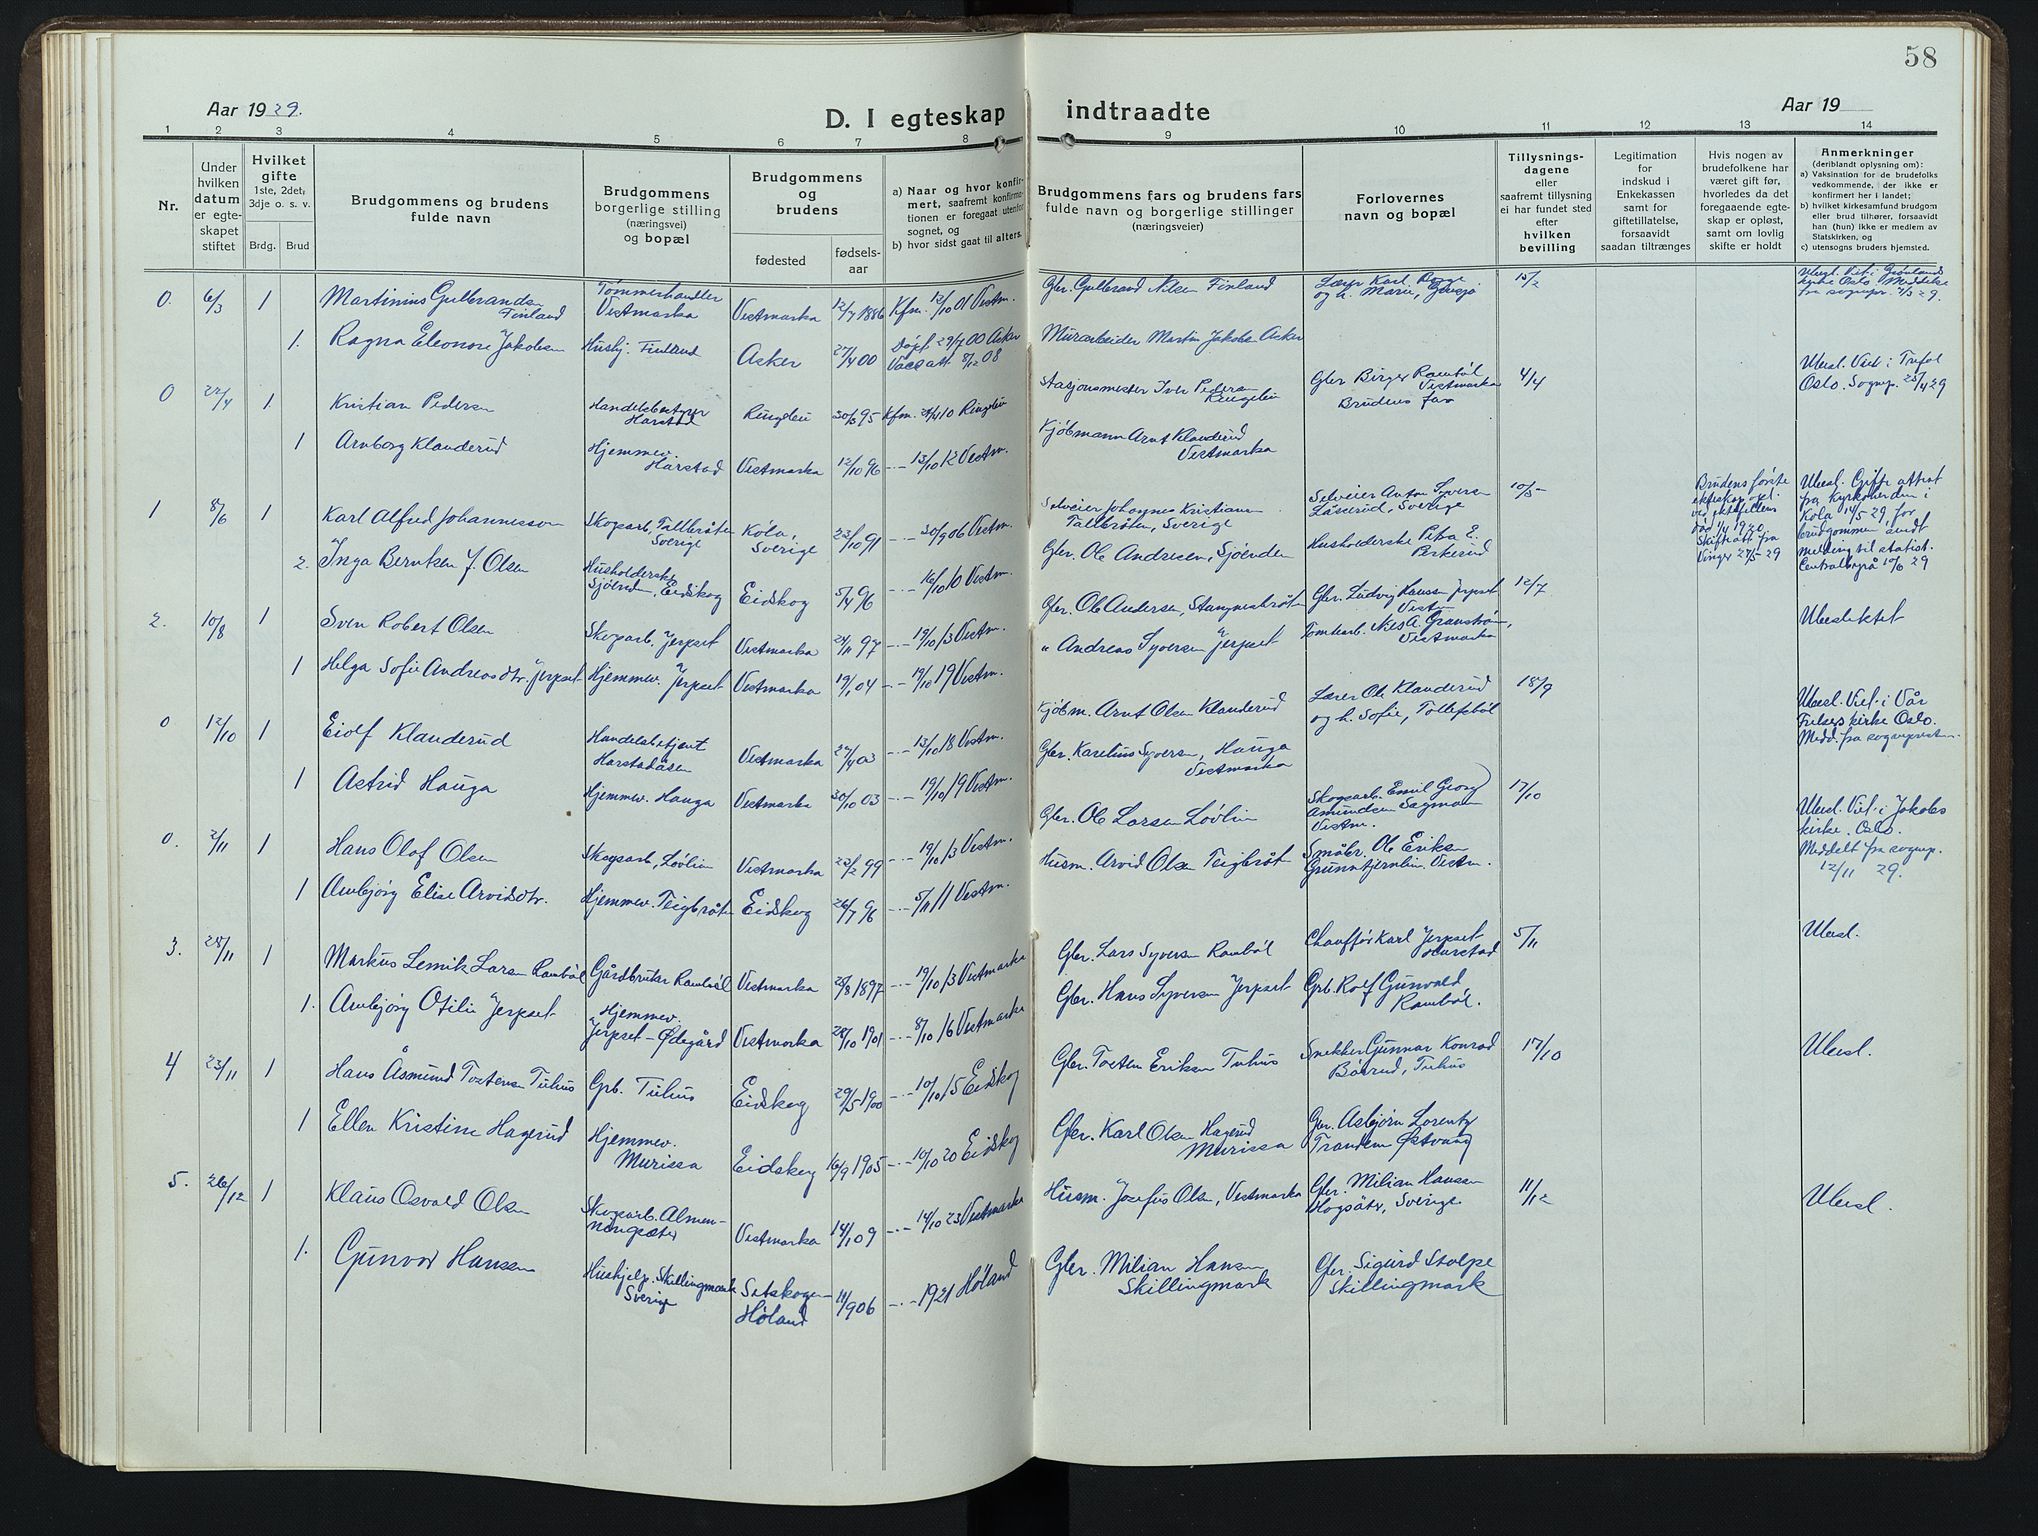 58
Aar 1929.
D. I egteskap indtraadte
Aar 19
1 2 3 4 5 6 7 8 9 10 11 12 13 14
Nr.
Under
hvilken
datum
er egte-
skapet
stiftet
Hvilket
gifte
1ste, 2det,
3dje o. s. v.
Brdg. Brud
Brudgommens og brudens
fulde navn
Brudgommens
borgerlige stilling
(næringsvei)
og bopæl
Brudgommens
og
brudens
fødested
fødsels-
aar
a) Naar og hvor konfir-
mert, saafremt konfirma-
tionen er foregaat utenfor
sognet, og
b) hvor sidst gaat til alters.
Brudgommens fars og brudens fars
fulde navn og borgerlige stillinger
(næringsveier)
Forlovernes
navn og bopæl
Tillysnings-
dagene
eller
saafremt tillysning
ei har fundet sted
efter
hvilken
bevilling
Legitimation
for
indskud i
Enkekassen
samt for
giftetillatelse,
forsaavidt
saadan tiltrænges
Hvis nogen av
brudefolkene har
været gift før,
hvorledes da det
foregaaende egte-
skap er opløst,
samt om lovlig
skifte er holdt
Anmerkninger
(deriblandt oplysning om):
a) Vaksination for de brudefolks
vedkommende, der ikke er
konfirmert her i landet;
b) hvilket kirkesamfund brudgom
eller brud tilhører, forsaavidt
han (hun) ikke er medlem av
Statskirken, og
c) utensogns bruders hjemsted.
0. 6/3 1 Martinius Gulbrandsen
Finland
Tømmerhandler
Vestmarka
Vestmarka 12/7 1886 Kfm. 12/10 01 Vestm.
Gbr. Gulbrand Nilsen Finland
Lærer Karl
og h. Marie,
15/2
Ubesl. Viet i Grønlands
kirke Oslo Meddelt
fra sognepr. 7/3 29.
1. Ragna Eleonore Jakobsen Hushj. Finland Asker 27/4 00 Døpt 29/7 00 Asker
Vacc att 8/12 08
Murarbeider Martin Jakobsen Asker
0 22/4 1. Kristian Pedersen
Handelsbestyrer
Harstad
Ringebu 30/3 95 Kfm. 24/4 10 Ringebu
Stasjonsmester Iver Pedersen
Ringebu
Gbr Birger Rambøl
Vestmarka
Brudens far
4/4
Ubesl. Viet i Trefol
Oslo. Sognep. 25/4 29
1 Arnborg Klanderud
Hjemmev.
Harstad
Vestmarka 12/10 96 -..- 13/10 12 Vestm.
Kjøbmann Arnt Klanderud
Vestmarka
1 8/6 1 Karl Alfred Johannesson
Skogsarb. Tallbråten
Sverige
Köla,
Sverige
23/10 91 -..- 30/9 06 Vestm.
Selveier Johannes Kristiansen
Tallbråten, Sverige
Selveier Anton Syversen
Låserud, Sverige
10/5
Brudens første
ekteskap opl.
ved ektefellens
død 1/4 1920.
Skifteatt fra
Vinger 27/5 - 29
Ubesl. Gifte attest
fra kyrkoherden i
Köla 14/5 29, for
brudgommen sendt
melding til statist.
Centralbyrå 10/6 29
2. Inga Berntsen f. Olsen
Husholderske
Sjøenden, Eidskog
Eidskog 5/4 96 -..- 16/10 10 Vestm.
Gbr. Ole Andresen, Sjøenden
Husholderske Petra E.
2. 10/8 1 Sven Robert Olsen
Skogarb. Jerpset Vestmarka 24/11 97 -..- 19/10 13 Vestm.
Gbr. Ole Andersen, Stangnesbråten
Gbr. Ludvig Hansen Jerpset
Vestm
12/7 Ubeslektet
1 Helga Sofie Andreasdtr. Jerpset Hjemmev. Jerpset Vestmarka 19/1 04 -..- 19/10 19 Vestm.
" Andreas Syversen Jerpset
Tomtearb. Nils A. Granstrøm,
Vestmarka
0 12/10 1 Eiolf Klanderud
Handelsbetjent
Harstadåsen
Vestmarka 27/4 03 -..- 13/10 18 Vestm.
Kjøbm. Arnt Olsen Klanderud
Lærer Ole Klanderud
og h. Sofie, Tollefsbøl
18/9
Ubesl. Viet i Vår
Frelsers kirke Oslo.
Medd. fra sogneprest
1 Astrid Hauga Hjemmev. Hauga Vestmarka 30/10 03 -..- 19/10 19 Vestm.
Gbr. Karelius Syversen, Hauga
Vestmarka
0. 2/11 1 Hans Olof Olsen Skogsarb, Løvlien Vestmarka 23/2 99 -..- 19/10 13 Vestm.
Gbr. Ole Larsen Løvlien
Skogsarb. Emil Georg
Amundsen Sagmoen
Vestm.
17/10
Ubesl. Viet i Jakobs
kirke. Oslo.
Meddelt fra sognep.
12/11 29.
1 Arnbjørg Elise Arvidsdtr. Hjemmev. Teigbråten Eidskog 26/7 96 -..- 5/11 11 Vestm.
Husm. Arvid Olsen Teigbråt
Småbr. Ole Eriksen
Grunntjernlien Vestm.
3. 28/11 1 Markus Lemik Larsen Rambøl Gårdbruker Rambøl Vestmarka 28/8 1897 -..- 19/10 13 Vestmarka
Gbr. Lars Syversen Rambøl
Chauffør Karl Jerpset
Harstad
5/11 Ubesl.
1. Arnbjørg Otilie Jerpset
Hjemmev.
Jerpset - Ødegård
Vestmarka 28/10 1901 -..- 8/10 16 Vestmarka
Gbr. Hans Syversen Jerpset
Grb. Rolf Gunvald
Rambøl.
4 23/11 1 Hans Åsmund Tostensen Tuhus Grb. Tuhus Eidskog 29/5 1900 -..- 10/10 15 Eidskog
Gbr. Tosten Eriksen Tuhus
Snekker Gunnar Konrad
Bårud, Tuhus
17/10 Ubesl.
1 Ellen Kristine Hagerud
Hjemmev.
Murissa
Eidskog 16/9 1905 -..- 10/10 20 Eidskog
Gbr. Karl Olsen Hagerud
Murissa
Gbr. Asbjørn Lorentz
Trandem Østvang
5. 26/12 1 Klaus Osvald Olsen
Skogsarb. Almen-
ningsæter
Vestmarka 14/1 09 -..- 14/10 23 Vestmarka
Husm. Josefus Olsen, Vestmarka
Gbr. Milian Hansen
Hogsäter, Sverige
11/12 Ubesl.
1. Gunvor Hansen
Hushjelp. Skillingmark
Sverige
Setskogen
Høland
11/9 06 -..- 1921 Høland
Gbr. Milian Hansen
Skillingmark
Gbr. Sigurd Stolpe
Skillingmark